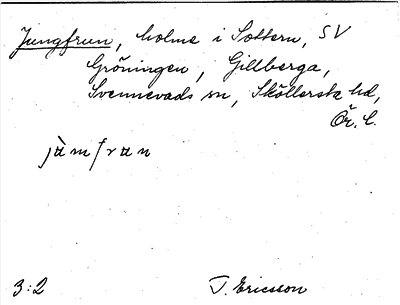 Jungfrun, holme i Sottern, SV
Gröningen, Gillberga,
Svennevads sn, Sköllersta hd,
Ör. l.
jàmfrɑn
3:2 T. Ericsson